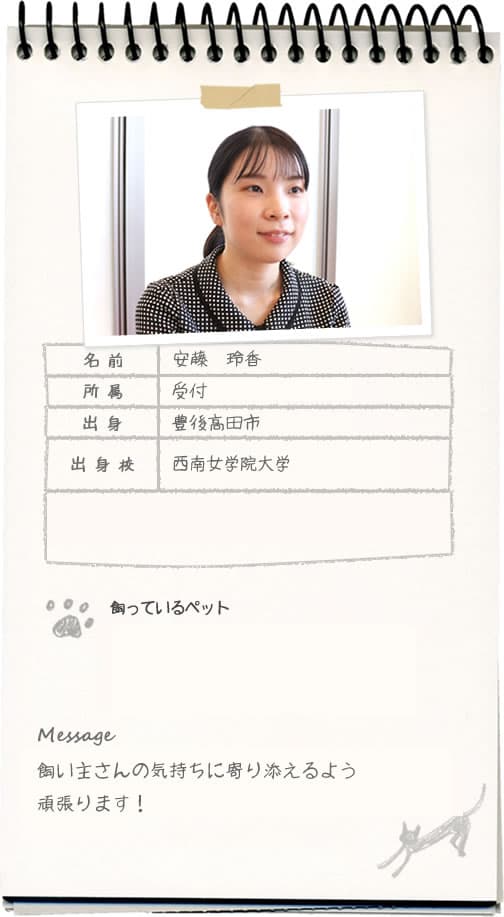 名前 安藤 玲香
所属 受付
出身 豊後高田市
出身校 西南女学院大学
飼っているペット
Message
飼い主さんの気持ちに寄り添えるよう
頑張ります！